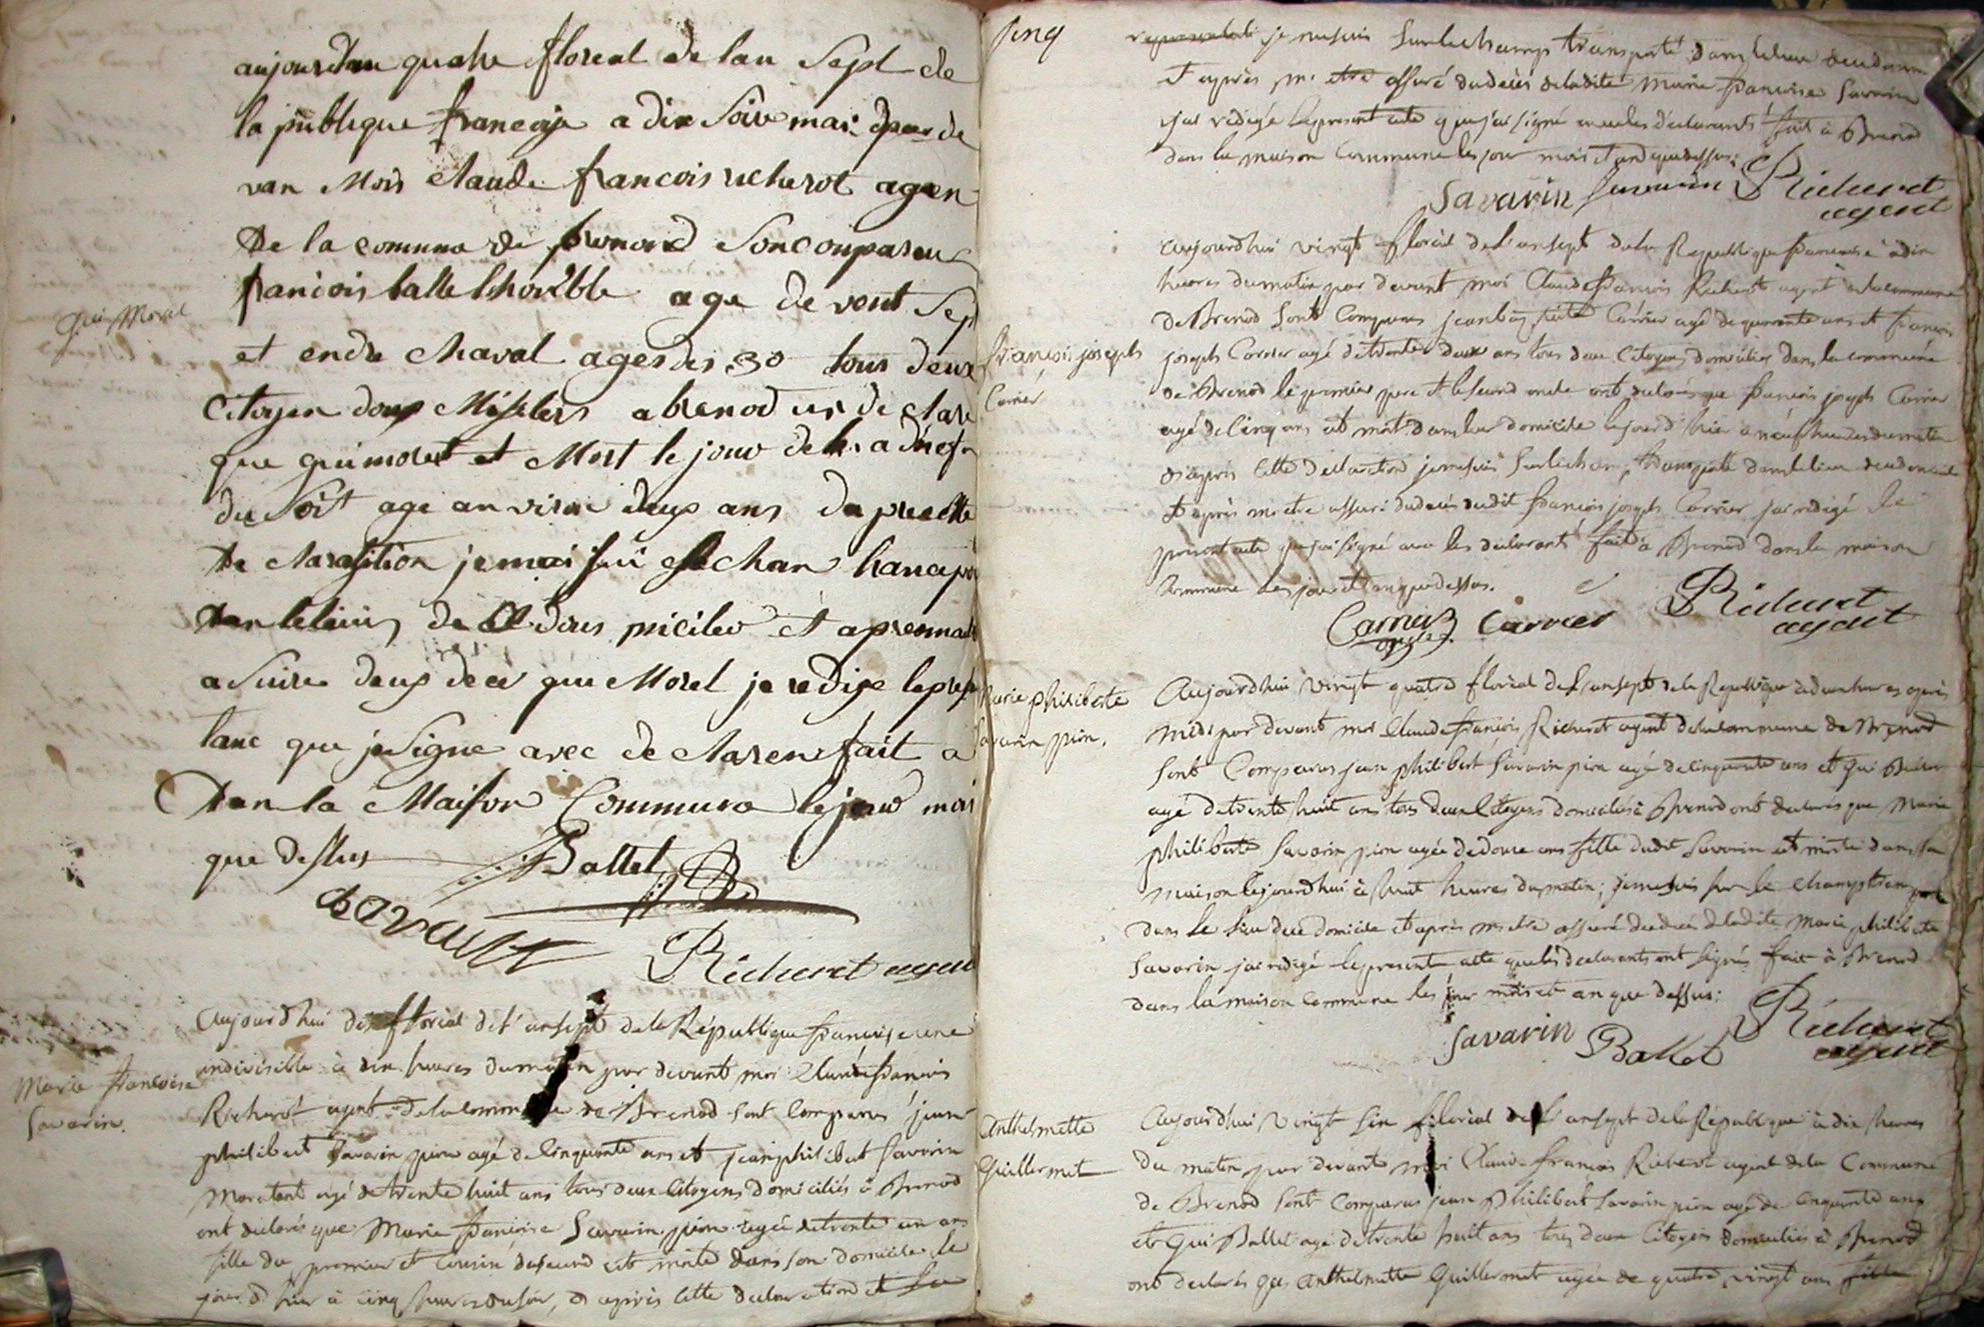 aujourdhu quatre floreal de lan Sept de
la publique françoise a dix Soive mai par de
van Mois Claude francois richerot agen
de la comuna de brenord Son comparu
francois ballet age de vent Sep
Gui Morel
et endre Chaval ages des 30 tous deux
Citoyen a brenod de clare
que gui morel et Mort le jour
du Soit age anviron deux ans da pres cette
de claration je mai sui
de et apre
a Suire deus de ce gui Morel je redige le pres
tanc que je Signe avec de claren fait a
Dan la Maison Communa le jour mois
que dessus
Ballet
Savarin
Richerot agent
Aujourdhui dix floréal de l'an sept de la République françoise une
indivisible à dix heures du matin par devant moi Claude françois
Marie françoise
Savarin.
Richerot agent de la commune de Brenod sont Comparus jean
philibert Savarin pion agé de Cinquante ans et jean philibert Savarin
Moratent agé de trente huit ans tous deux Citoyens domiciliés à Brenod
ont déclarés que Marie françoise Savarin pion agée de trente un ans
fille du premier et Cousine du second est morte dans son domicile le
jour d'hier à cinq heures du soir, d'après cette declaration
Cinq
je me suis sur le champ transporté dans le lieu du domicile
et après m'être assuré du décès de ladite Marie françoise Savarin
j'ai rédigé le present acte que j'ai signé avec les déclarants fait à Brenod
dans la maison Commune les jour mois et an que dessus:
Savarin Savarin Richerot
agent
Aujourdhui vingt floréal de l'an sept de la République françoise à dix
heures du matin par devant moi Claude françois Richerot agent de la commune
de Brenod sont Comparus jean baptiste Carrier agé de quarante ans et francois
françois joseph
Carrier
joseph Carrier agé de trente deux ans tous deux Citoyens domiciliés dans la commune
de Brenod le premier pere et le second oncle ont déclarés que françois joseph Carrier
agé de Cinq ans est mort dans leur domicile le jour d'hier à neuf heures du matin
d'après cette declaration je me suis sur le champ transporté dans le lieu du domicile
et après m'être assuré du décès dudit françois joseph Carrier j'ai redigé le
present acte que j'ai signé avec les déclarants fait à Brenod dans la maison
Commune les jour et an que dessus.
Carrier Carrier Richerot
agent
Marie philiberte
Savarin pion.
Aujourdhui vingt quatre floréal de l'an sept de la République à deux heures après
midi par devant moi Claude françois Richerot agent de la commune de Brenod
sont Comparus jean philibert Savarin pion agé de cinquante ans et Gui Ballet
agé de trente huit ans tous deux Citoyens domiciliés à Brenod ont declarés que Marie
philiberte Savarin pion agée de douze ans fille dudit Savarin est morte dans sa
maison le jourdhui à huit heures du matin; je me suis sur le champ transporté
dans le lieu du domicile et après m'être assuré du décès de ladite Marie philiberte
Savarin j'ai redigé le present acte que les declarants ont signés fait à Brenod
dans la maison commune les jour mois et an que dessus:
Savarin Ballet Richerot
agent
Anthelmette
Guillermet
Aujourdhui vingt six floréal de l'an sept de la République à dix heures
du matin par devant moi Claude françois Richerot agent de la Commune
de Brenod sont Comparus jean Philibert Savarin pion agé de cinquante ans
et Gui Ballet agé de trente huit ans tous deux Citoyens domiciliés à Brenod
ont declarés que Anthelmette Guillermet agée de quatre vingt ans fille